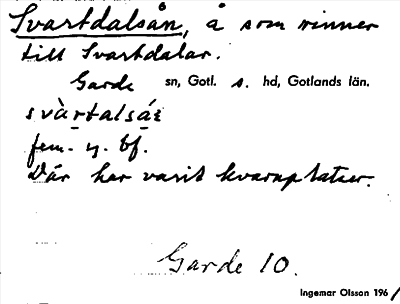 Svartdalsån, å som rinner
till Svartdalar.
Garde sn, Gotl. s. hd, Gotlands län.
svàrtalsá:
fem. y. bf.
Där har varit kvarnplatser.
Garde 10.
Ingemar Olsson 196/